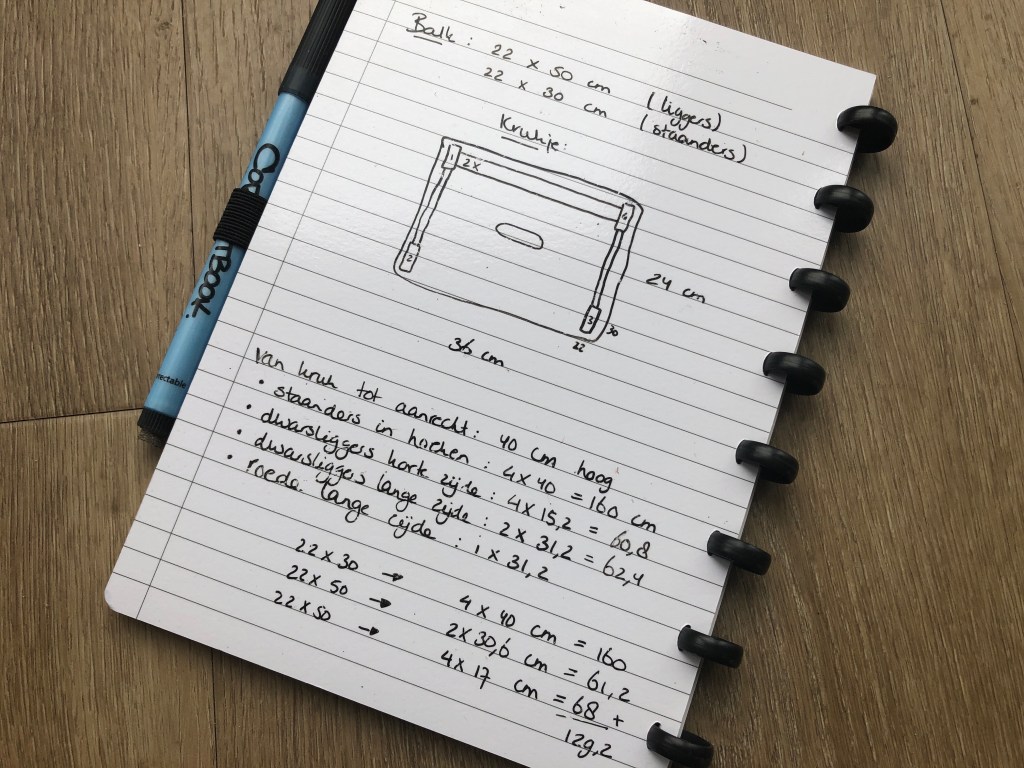 Balk : 22 x 50 cm (liggers)
22 x 30 cm (staanders)
Krukje:
1
2x
4
2
3
24 cm
30
22
36 cm
van kruk tot aanrecht: 40 cm hoog
• staanders in hoeken : 4 x 40 = 160 cm
• dwarsliggers kort zijde : 4 x 15,2 = 60,8
• dwarsliggers lange zijde : 2 x 31,2 = 62,4
• roede lange zijde : 1 x 31,2
22 x 30 → 4 x 40 cm = 160
22 x 50 → 2 x 30,6 cm = 61,2
22 x 50 → 4 x 17 cm = 68 +
129,2
rectable